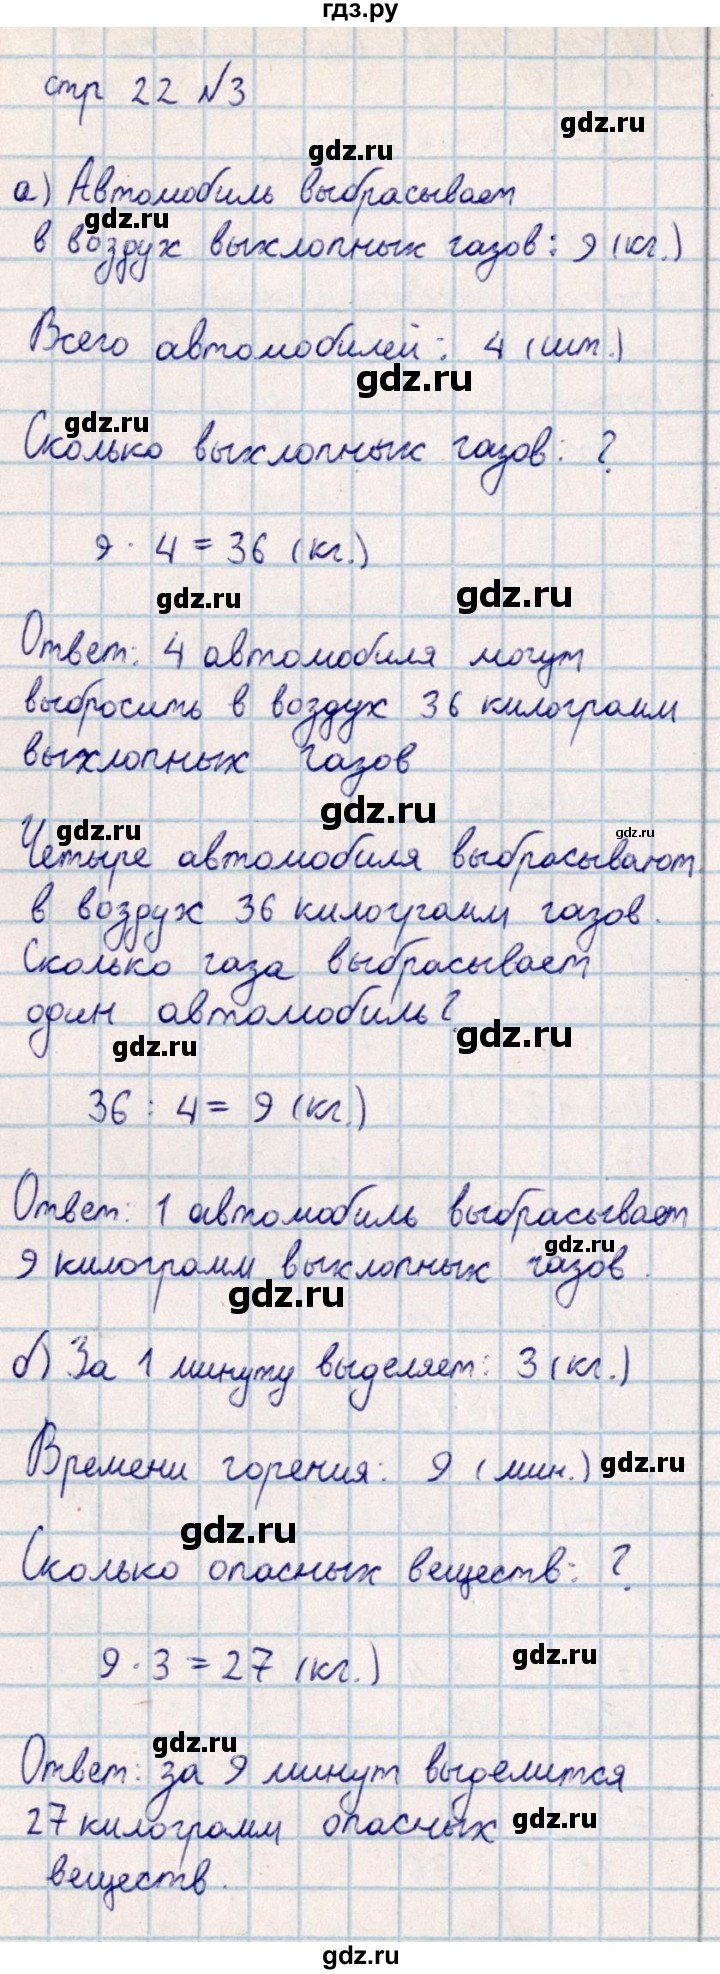 гдз.ру
стр 22 №3
gdz.ru
gdz.ru
а) Автомобиль выбрасывает
gdz.ru
в воздух выхлопных газов: 9 (кг.)
Всего автомобилей: 4 (шт.)
gdz.ru
gdz.ru
Сколько выхлопных газов: ?
9 · 4 = 36 (кг.)
gdz.ru
gdz.ru
Ответ: 4 автомобиля могут
выбросить в воздух 36 килограмм
выхлопных газов
gdz.ru
gdz.ru
gdz.ru
Четыре автомобиля выбрасывают
в воздух 36 килограмм газов.
Сколько газа выбрасывает
один автомобиль?
gdz.ru
gdz.ru
36 : 4 = 9 (кг.)
Ответ: 1 автомобиль выбрасывает
gdz.ru
9 килограмм выхлопных газов.
gdz.ru
б) За 1 минуту выделяет: 3 (кг.)
Времени горения: 9 (мин.)
gdz.ru
gdz.ru
Сколько опасных веществ: ?
9 · 3 = 27 (кг.)
gdz.ru
gdz.ru
Ответ: за 9 минут выделится
27 килограмм опасных
gdz.ru
веществ.
gdz.ru